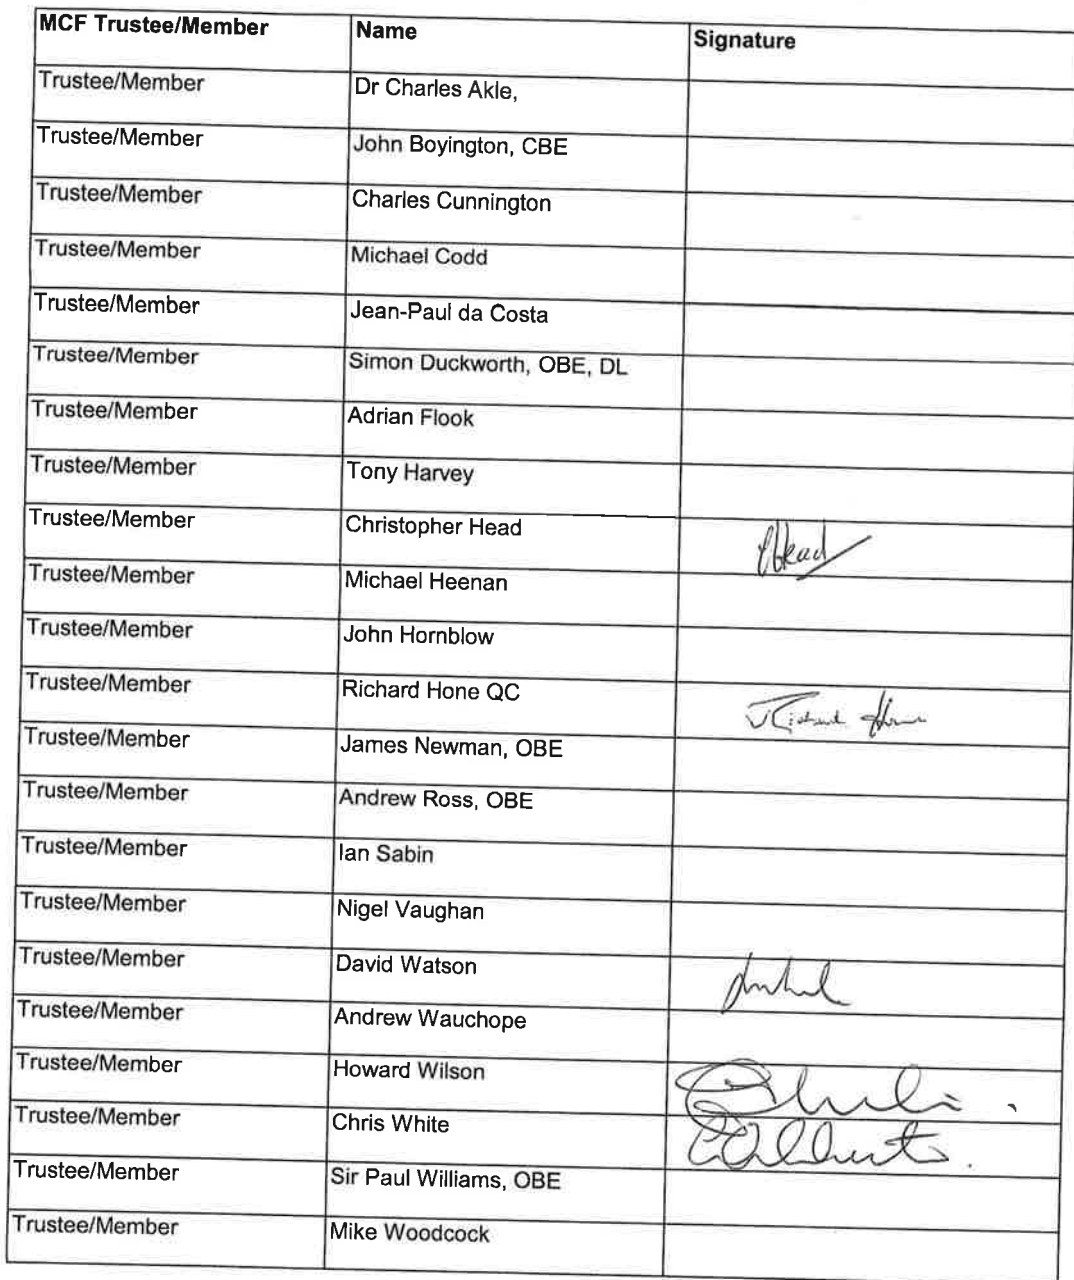 MCF Trustee/Member Name Signature
Trustee/Member Dr Charles Akle,
Trustee/Member John Boyington, CBE
Trustee/Member Charles Cunnington
Trustee/Member Michael Codd
Trustee/Member Jean-Paul da Costa
Trustee/Member Simon Duckworth, OBE, DL
Trustee/Member Adrian Flook
Trustee/Member Tony Harvey
Trustee/Member Christopher Head
Trustee/Member Michael Heenan
Trustee/Member John Hornblow
Trustee/Member Richard Hone QC
Trustee/Member James Newman, OBE
Trustee/Member Andrew Ross, OBE
Trustee/Member Ian Sabin
Trustee/Member Nigel Vaughan
Trustee/Member David Watson
Trustee/Member Andrew Wauchope
Trustee/Member Howard Wilson
Trustee/Member Chris White
Trustee/Member Sir Paul Williams, OBE
Trustee/Member Mike Woodcock